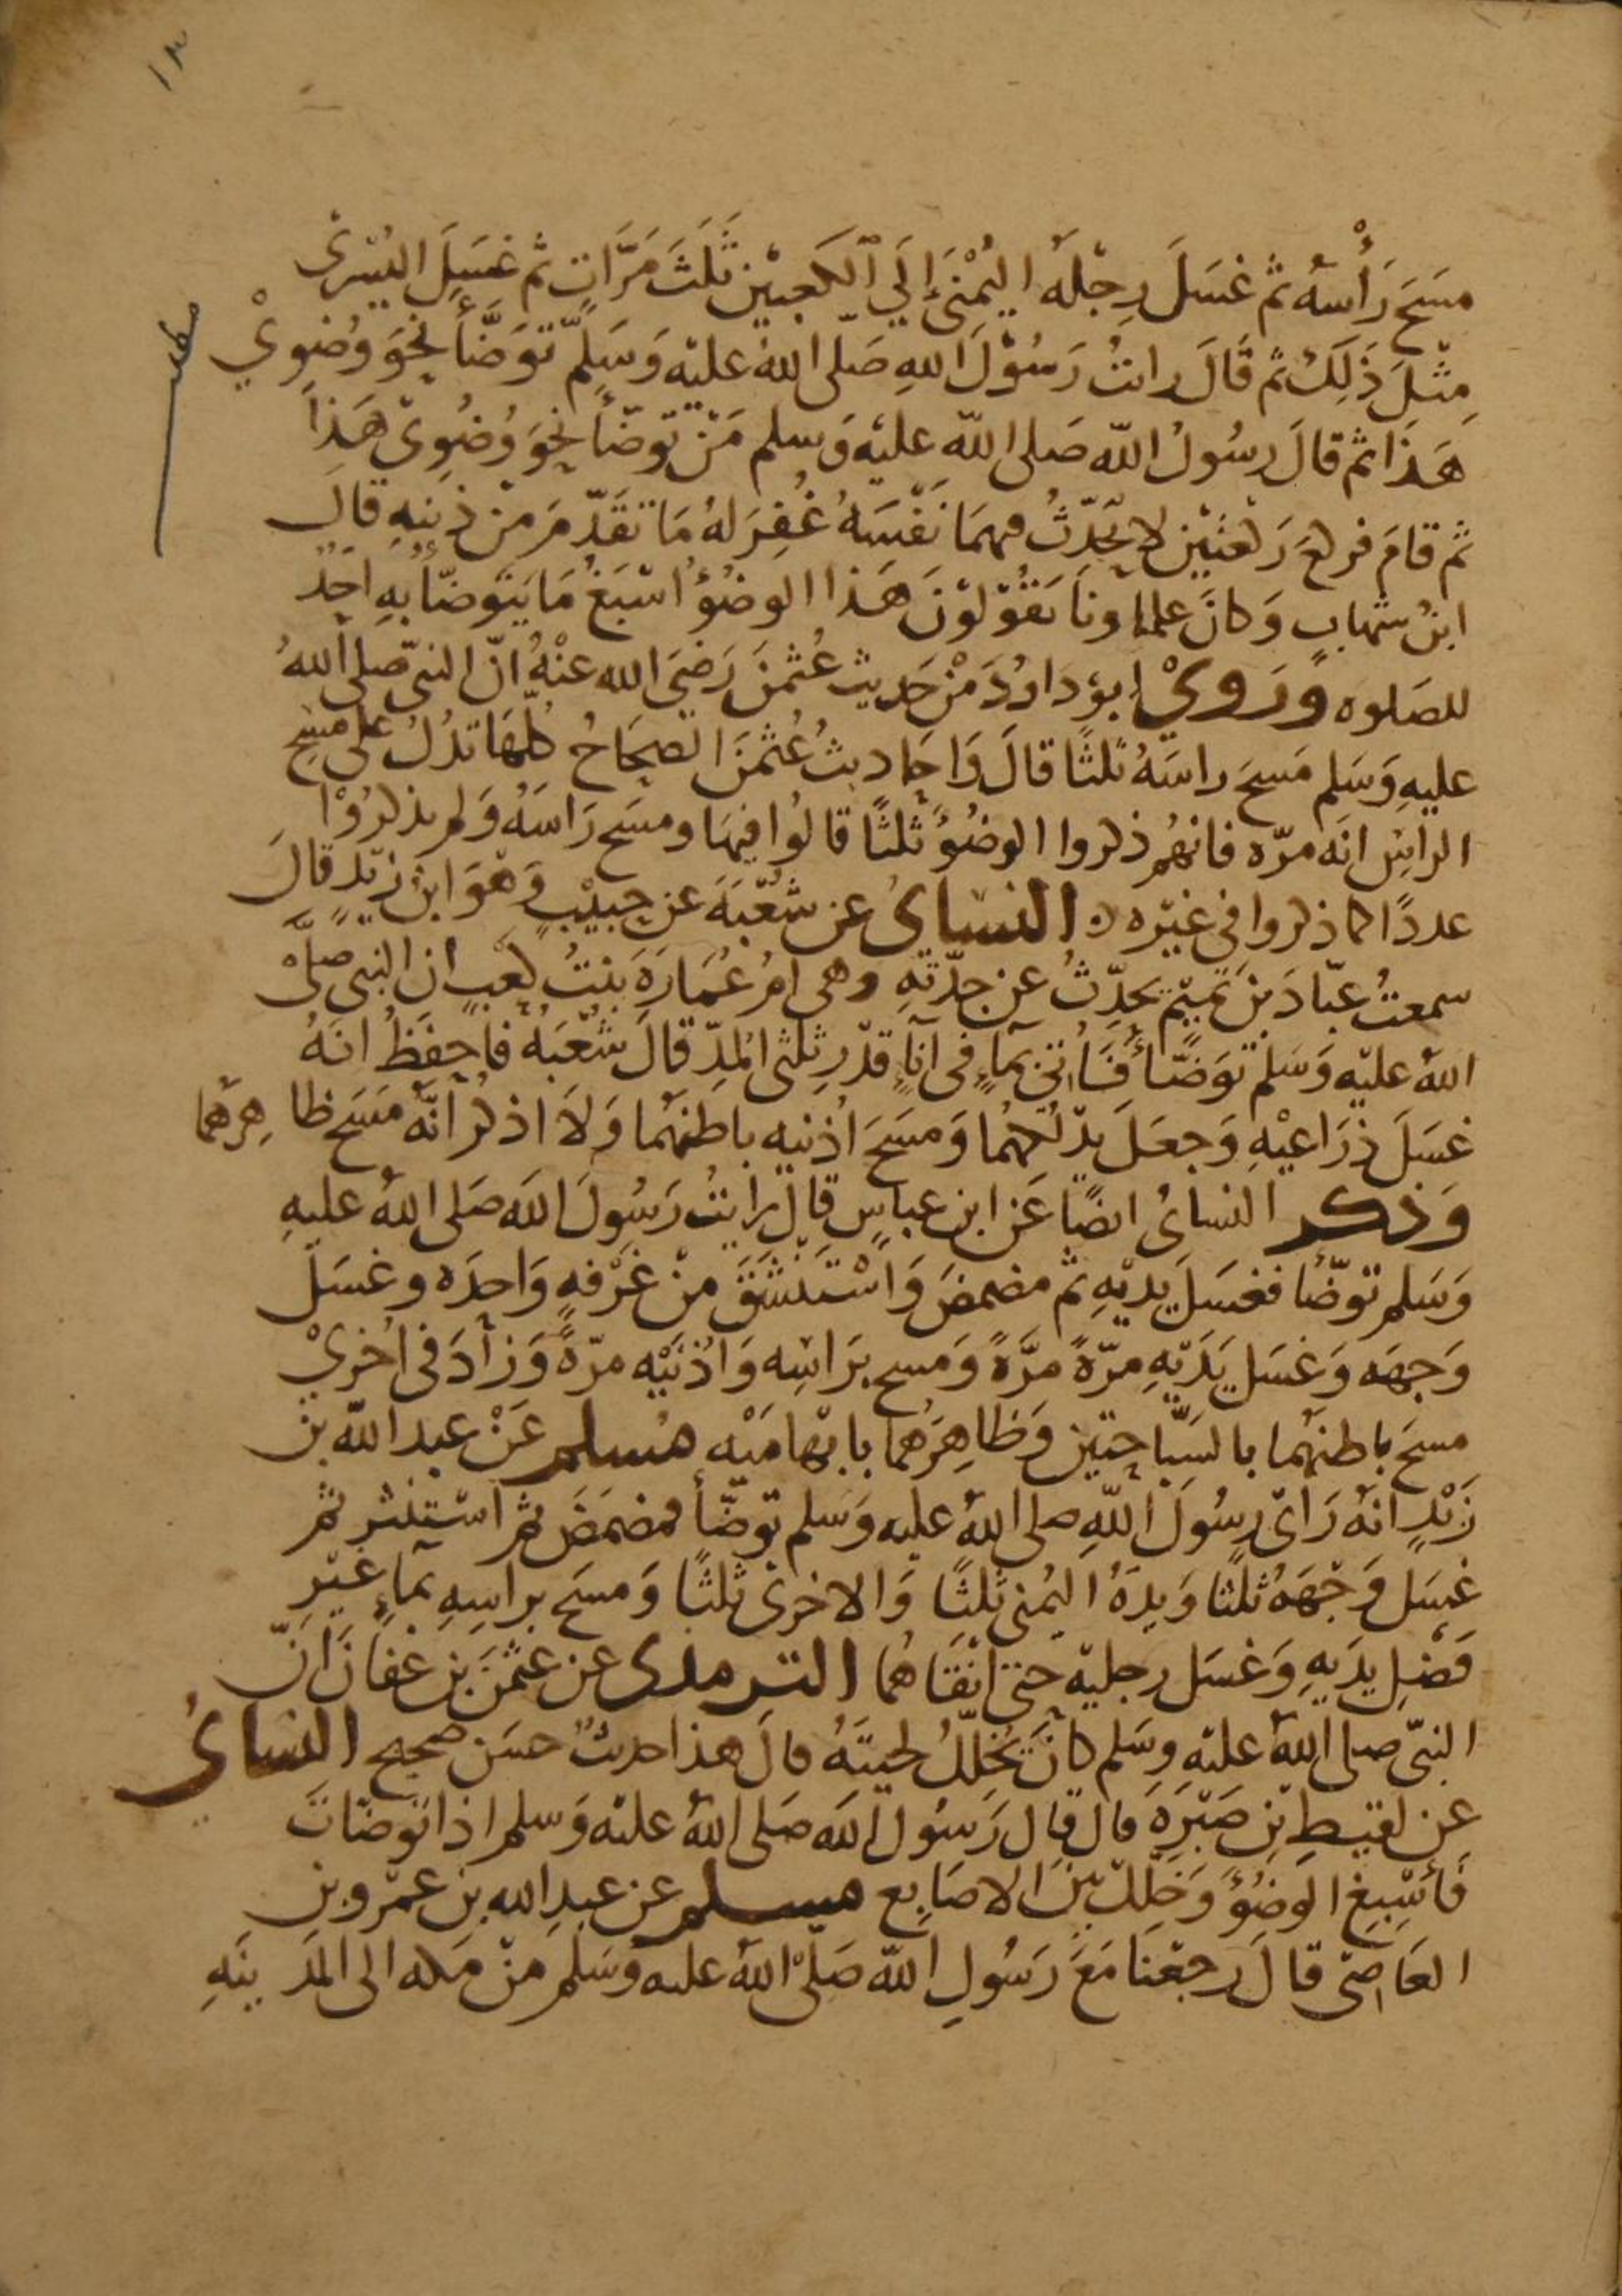 مَسَحَ رَأْسَهُ ثم غسَلَ رِجْلَهُ اليُمْنَى إِلَى الكَعبَيْنِ ثَلَثَ مَرَّاتٍ ثم غسَلَ اليُسْرَى
مِثْلَ ذَلِكَ ثم قَالَ رايتُ رَسُوْلَ اللهِ صَلى اللهُ عليْه وَسَلم تَوَضَّأَ نحْوَ وُضُوىْ
هَذَا ثم قالَ رسُولُ اللّه صَلى اللّه عليْه وَسلم مَنْ تَوضّأ نحْوَ وُضُوىْ هَذَا
ثم قامَ فركعَ رَكعَتَيْنِ لا يُحَدّثُ فيهمَا نَفْسَهُ غُفِرَ لهُ مَا تقَدّمَ مِنْ ذنبِهِ قال
ابنُ شهابٍ وَكانَ علماونَا يَقُوْلوْنَ هَذا الوضُوُ اسْبَغُ مَا يَتَوضّأ بهِ احَدٌ
للصَلوه وَرَوىْ ابو دَاوُدَ مِنْ حَدِيث عُثمنَ رَضيَ الله عنْهُ انّ النبىّ صلى اللهُ
عليهِ وَسَلم مَسحَ راسَهُ ثلثًا قالَ وَاحَاديثُ عُثمنَ الصحَاحُ كلهَا تدُلُ على مَسْحِ
الراسِ انَه مرّه فانهُم ذكروا الوضُوُ ثلثًا قالُوا فيهَا ومسَح رَاسَهُ وَلم يذكرُوْا
عددًا كما ذكروا فى غيْره ٥ النسَاىُ عن شعْبَةَ عن حبيْبٍ وَهْوَ ابنُ زيْدٍ قالَ
سمعتُ عبّادَ بن تميْم يحَدِّثُ عن جدّتهِ وهى امُ عُمَارَةَ بنتُ كعْبٍ ان النبى صلىْ
اللهُ عليْه وَسَلم توَضّأ فَأُتِىَ بمآءٍ فى انآءٍ قدْرِ ثلثى المُدِّ قالَ شُعْبَهُ فاحفَظُ انهُ
غسَلَ ذِرَاعيْهِ وَجعَلَ يدْلُكهُما وَمسَحَ اُذنيه باطنهُما وَلاَ اذكرُ انّهُ مَسَح ظاهِرَهُما
وَذكر النساىُ ايضًا عَن ابن عباسٍ قال رايتُ رَسُولَ اللّه صَلى اللهُ عليهِ
وَسَلم توَضّأ فغسَلَ يديْهِ ثم مضمضَ وَاسْتَنشَقَ مِنْ غَرْفهٍ وَاحدَه وغسَلَ
وَجهَه وَغسَل يَدَيْهِ مرّةً مرَّةً وَمسح برَاسِه وَاذنَيْه مرّةً وَزادَ فى اخرىْ
مسحَ باطنهُما بالسَبّاحتيْن وَظاهِرَهُما بابْهامَيْه مُسلم عَنْ عبد اللّه بن
زَيْدٍ انهُ رَاىَ رسُولَ اللّهِ صلى اللهُ عليه وَسَلم توَضّأ فمضمَضَ ثم استنثر ثم
غسَل وَجْهَهُ ثلثًا وَيدَهُ اليُمنى ثلثًا وَالاخرى ثلثًا وَمسَح براسِهِ بمآءٍ غيْرِ
فَضْلِ يدَيهِ وَغسَل رجليْه حتى انْقَاهُما الترمدى عن عثمنَ بن عَفانَ انّ
النبىّ صلى اللهُ عليْه وسَلم كانَ يُخَلّلُ لحيَتهُ قالَ هذا حديثٌ حسَن صحيح النساىُ
عن لقيطِ بن صَبْرةَ قال قال رَسُول اللّه صَلى اللهُ عليْه وَسلم اذا توضاتَ
فَأسْبِغِ الوضُوَ وَخَلِّلْ بيْنَ الاصَابِع مسلم عن عبدِ الله بن عمْروبن
العَاصِى قالَ رجعْنَا مَعَ رَسُولِ اللّه صَلّىْ اللهُ عليه وَسَلم مِنْ مَكه الى المَدينَهِ